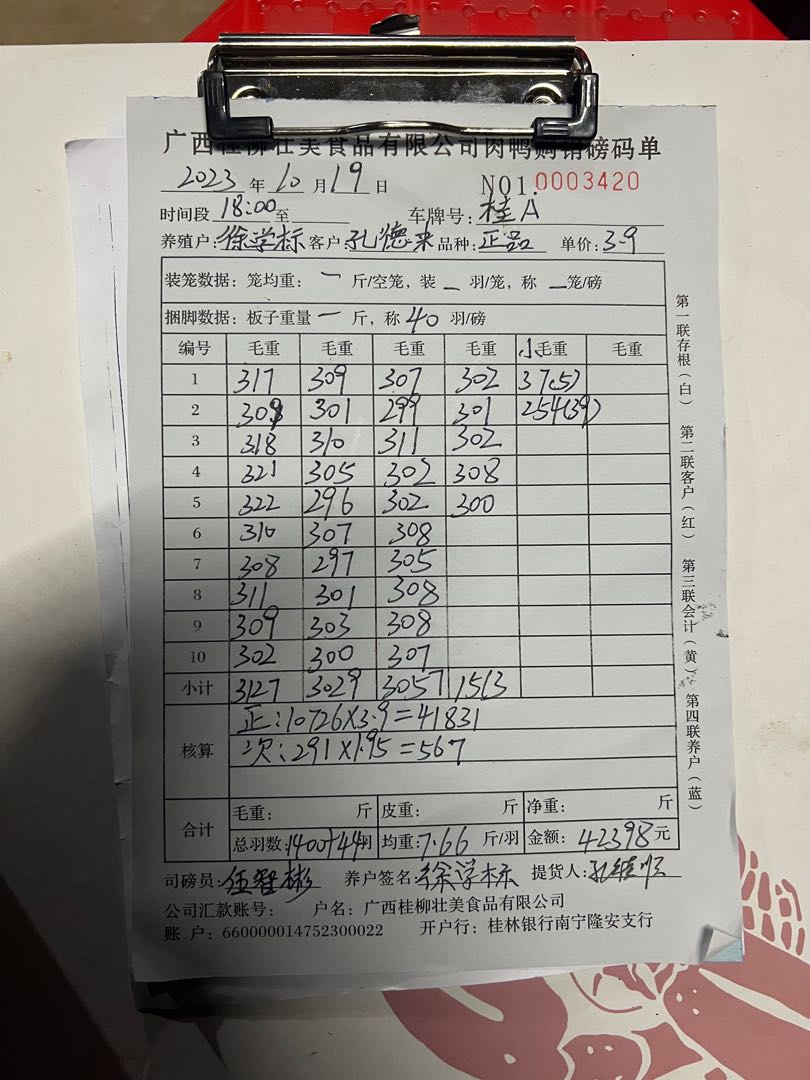 广西桂柳壮美食品有限公司肉鸭购销磅码单
2023 年 10 月 19 日 NO1. 0003420
时间段 18:00 至 车牌号: 桂A
养殖户: 徐学标 客户: 孔德来 品种: 正品 单价: 3.9
装笼数据: 笼均重: 一 斤/空笼, 装 一 羽/笼, 称 一 笼/磅
捆脚数据: 板子重量 一 斤, 称 40 羽/磅
编号 毛重 毛重 毛重 毛重 小毛重 毛重
1 317 309 307 302 37(5)
2 309 301 299 301 254(39)
3 318 310 311 302
4 321 305 302 308
5 322 296 302 300
6 310 307 308
7 308 297 305
8 311 301 308
9 309 303 308
10 302 300 307
小计 3127 3029 3057 1513
核算 正:10726×3.9=41831
次:291×1.95=567
合计 毛重: 斤 皮重: 斤 净重: 斤
总羽数: 1400+44羽 均重: 7.66 斤/羽 金额: 42398元
司磅员: 伍智彬 养户签名: 徐学标 提货人: 孔德顺
公司汇款账号: 户名: 广西桂柳壮美食品有限公司
账 户: 660000014752300022 开户行: 桂林银行南宁隆安支行
第一联存根(白) 第二联客户(红) 第三联会计(黄) 第四联养户(蓝)